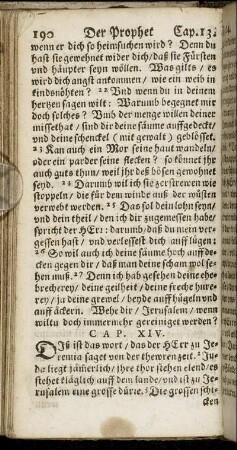 190 Der Prophet Cap.13.
wenn er dich so heimsuchen wird? Denn du
hast sie gewehnet wider dich / daß sie Fürsten
und häupter seyn wöllen. Was gilts / es
wird dich angst ankommen / wie ein weib in
kindsnöhten? 22 Und wenn du in deinem
hertzen sagen wilt: Warumb begegnet mir
doch solches? Umb der menge willen deiner
missethat / sind dir deine säume auffgedeckt /
und deine schenckel (mit gewalt) geblösset.
23 Kan auch ein Mor seine haut wandeln /
oder ein parder seine flecken? so könnet jhr
auch guts thun / weil jhr deß bösen gewohnet
seyd. 24 Darumb wil ich sie zerstrewen wie
stoppeln / die für dem winde auß der wüsten
verwebt werden. 25 Das sol dein lohn seyn /
und dein theil / den ich dir zugemessen habe /
spricht der HErr: darumb / daß du mein ver-
gessen hast / und verlessest dich auff lügen:
26 So wil auch ich deine säume hoch auffde-
cken gegen dir / daß man deine scham wol se-
hen muß. 27 Denn ich hab gesehen deine ehe-
brecherey / deine geilheit / deine freche hure-
rey / ja deine grewel / beyde auff hügeln und
auff äckern. Wehe dir / Jerusalem / wenn
wiltu doch immermehr gereiniget werden?
CAP. XIV.
Diß ist das wort / das der HErr zu Je-
remia saget von der thewren zeit. 2 Ju-
da liegt jämerlich / ihre thor stehen elend / es
stehet kläglich auff dem lande / und ist zu Je-
rusalem eine grosse dürre. 3 Die grossen schi-
cken